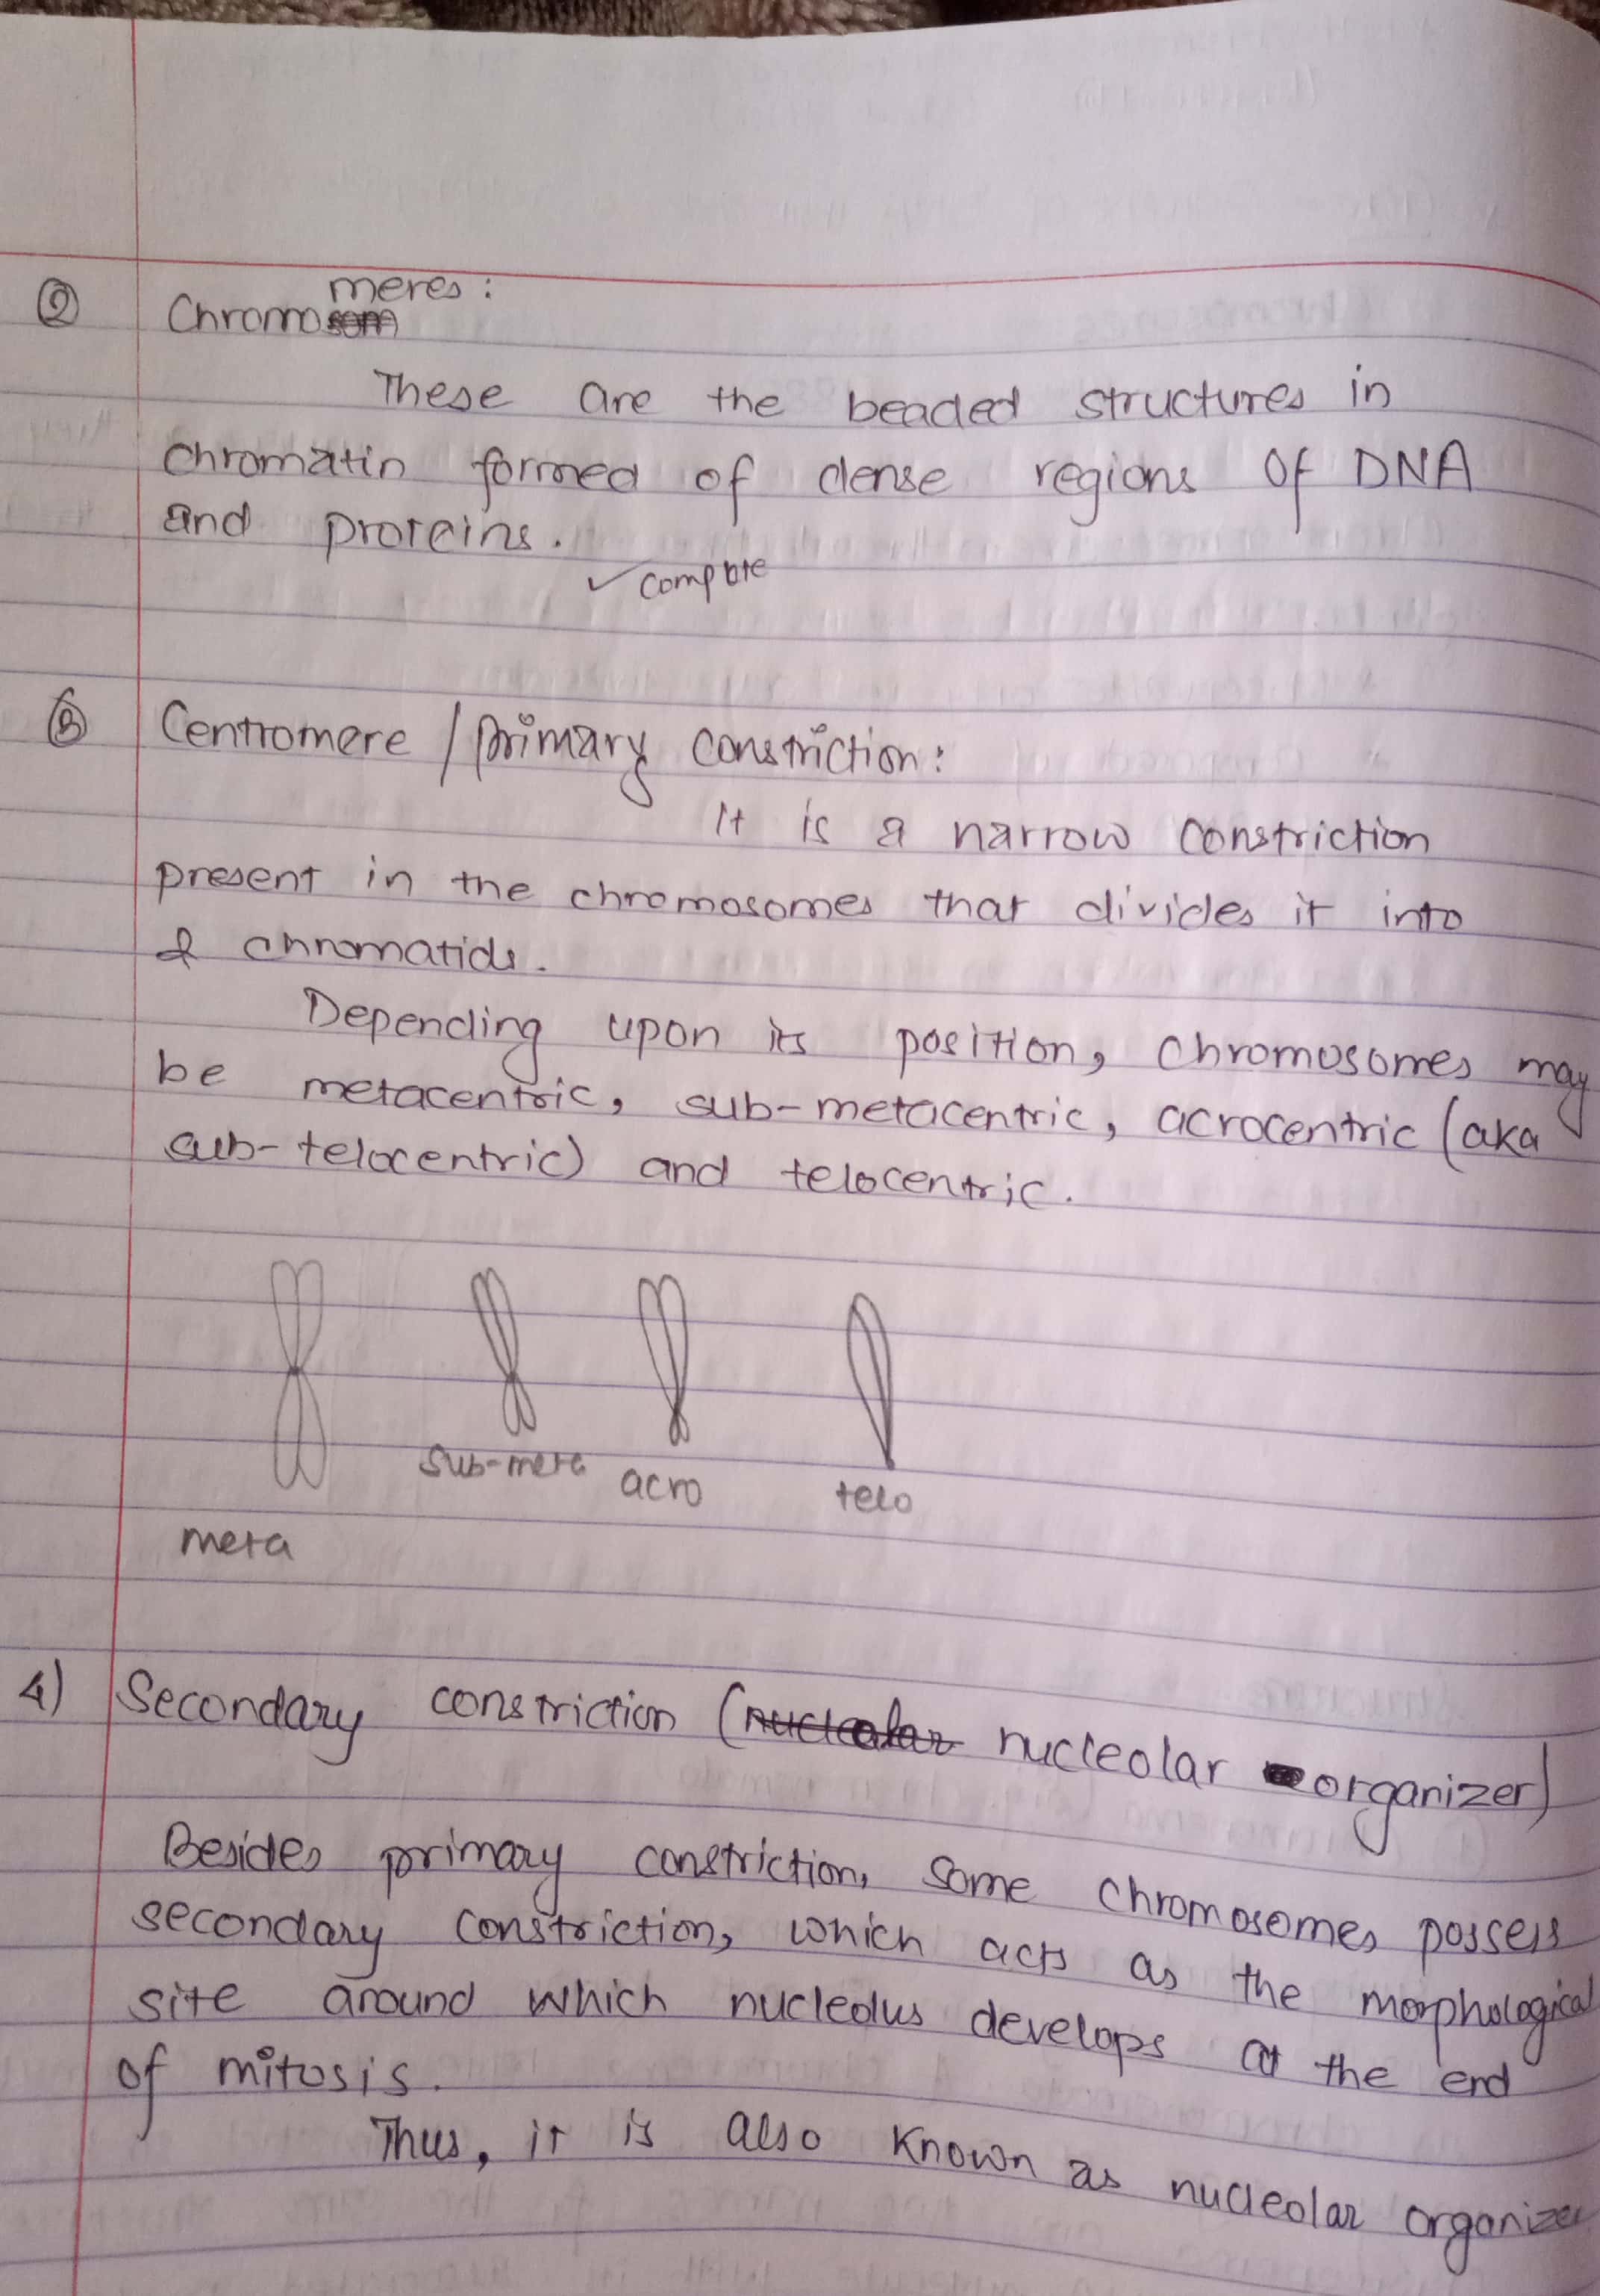 ② Chromosom meres :
These are the beaded structures in
chromatin formed of dense regions of DNA
and proteins.
✓ complete
③ Centromere / primary constriction :
It is a narrow constriction
present in the chromosomes that divides it into
2 chromatids.
Depending upon its position, chromosomes may
be metacentric, sub-metacentric, acrocentric (aka
sub-telocentric) and telocentric.
sub-meta acro telo
meta
4) Secondary constriction (nucleolar nucleolar organizer)
Besides primary constriction, some chromosomes possess
secondary constriction, which acts as the morphological
site around which nucleolus develops at the end
of mitosis.
Thus, it is also known as nucleolar organizer